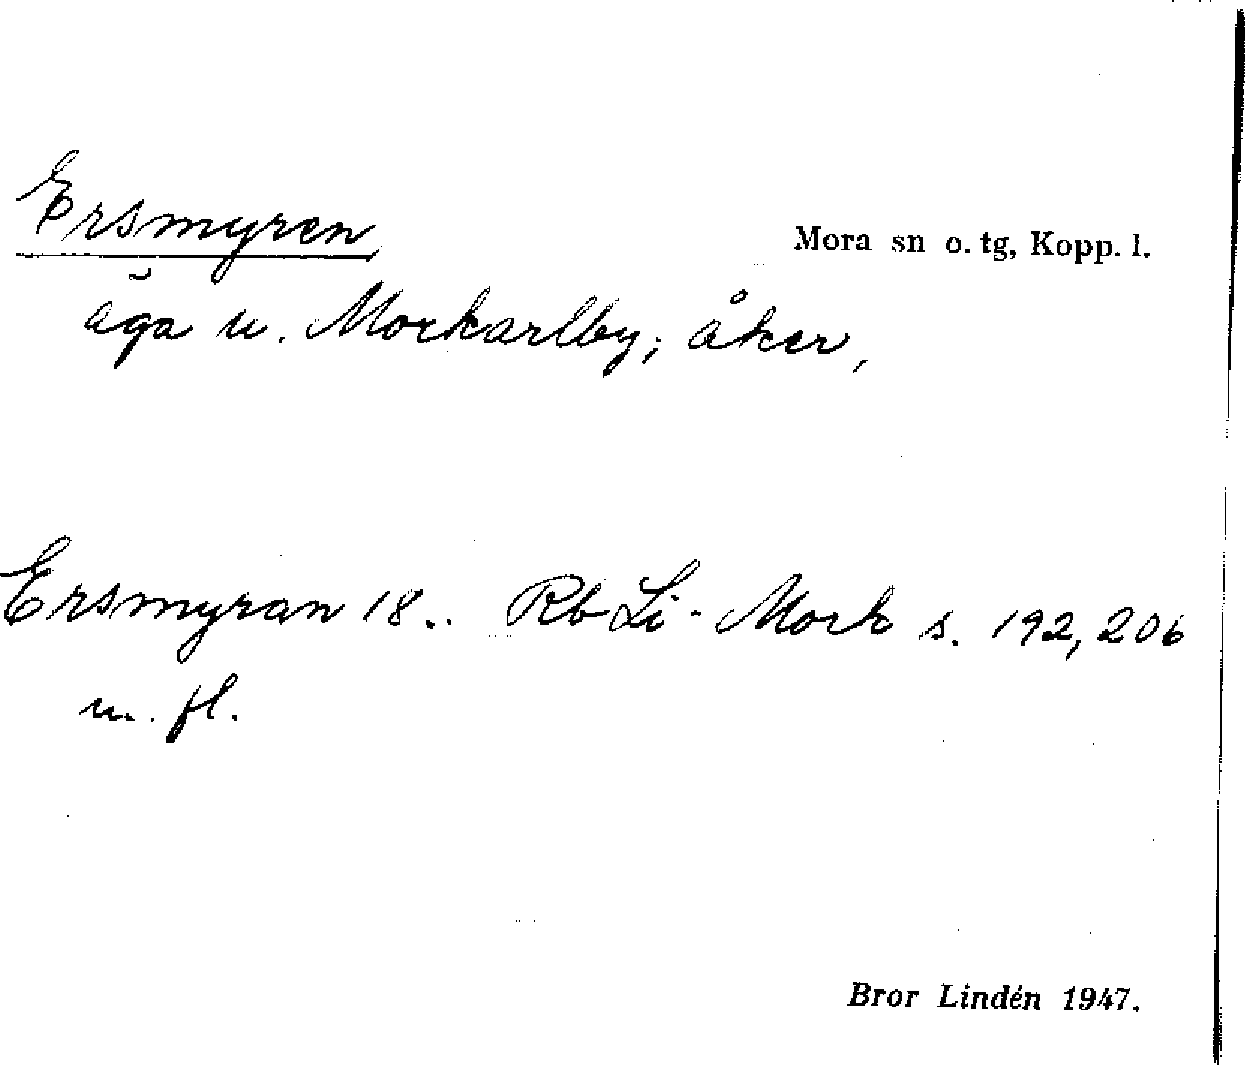 Ersmyren
Mora sn o. tg, Kopp. l.
äga u. Morkarlby; åker,
Ersmyran 18.. Rb Li-Mork s. 192, 206
m. fl.
Bror Lindén 1947.